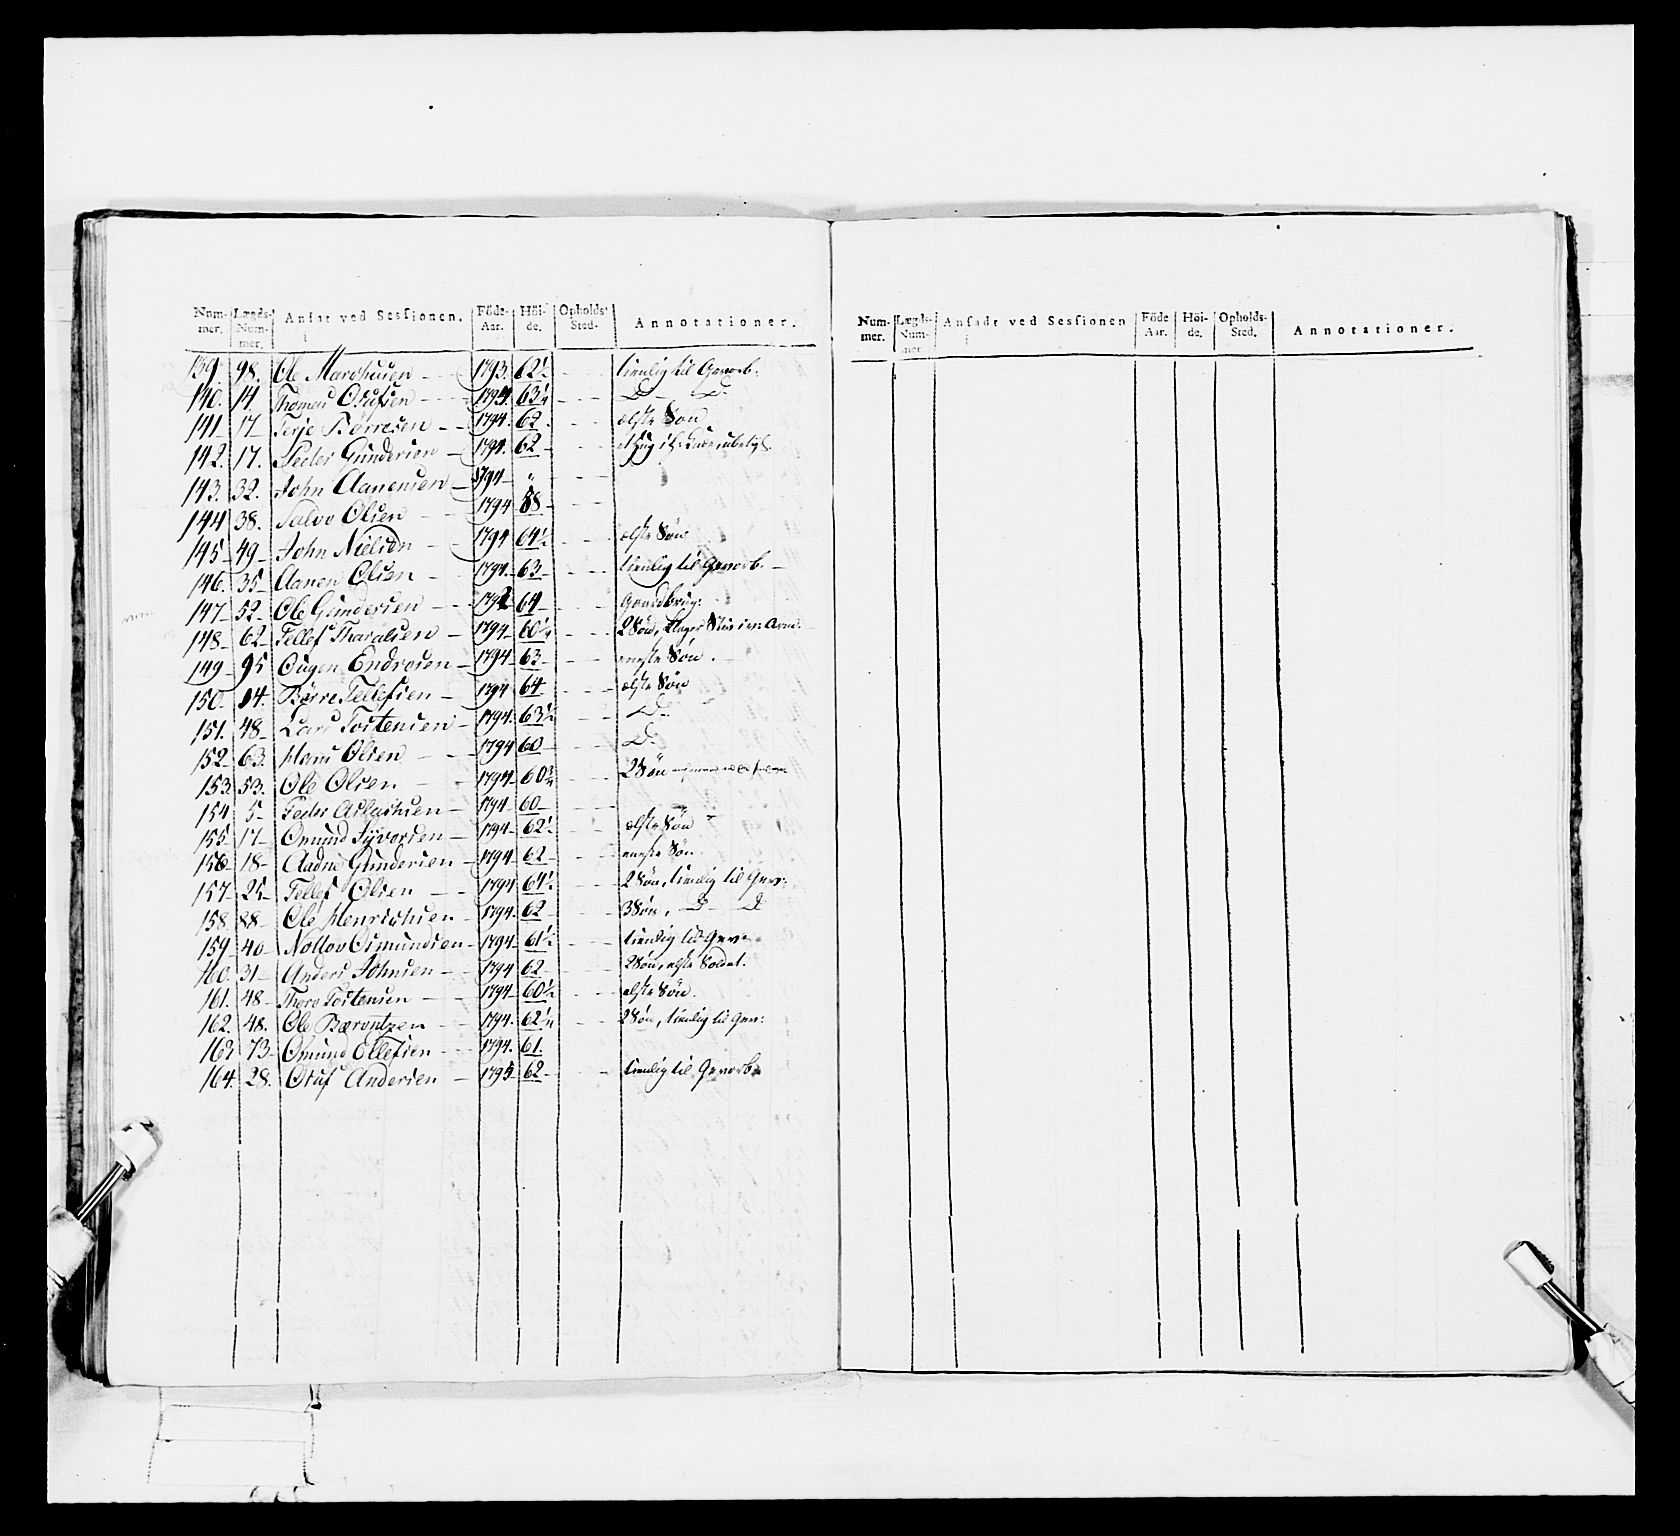 Num-mer. Lægds-Num-mer. Ansat ved Sessionen. Föde-Aar. Höi-de. Opholds-Sted. Annotationer.
139. 98. Ole 1793. 62½ tienlig til Gevorb.
140. 14. Thomas Olufsen 63¼ D D.
141 17 Terje Börresen 1794. 62. ælste Søn
142. 17. Peder Gundersen 1794. 62
143. 32. John Aanensen 1794 "
144 38. Salve Olsen 1794
145 49 John Nielsen 1794 64½ ælste Søn
146. 35 Aanen Olsen 1794. 63 tienlig til Gevorb.
147 52 Ole Gundersen 64 Gaardbrug:
148 62 Tellef Tharalsen 1794 60¼ 2 Søn,
149 95 Endresen 1794 63 eneste Søn.
150. Börre Tellefsen 1794 64 ælste Søn
151. 48 Lars Tostensen 1794. 63½ D.
152 63. Hans Olsen 1794 60 D.
153 53. Ole Olsen 1794 60¾ 2 Søn
154 5 Peder Aslachsen 1794 60
155 17 Omund Syversen 1794 62½ ælste Søn
156 18 Aadne Gundersen 1794 62 eneste Søn
157 25 Tellef Olsen 1794 64½ 2 Søn, tienlig til Gev:
158. 88 Ole Henrichsen 1794. 62 3 Søn, D D
159 40 Osmundsen 1794 61½ tienlig til Gev
160 31 Anders Johnsen 1794 62 2 Søn, ælste Soldat.
161. 48 Thore Tostensen 1794 60½ ælste Søn.
162. 48. Ole Berentzen 1794. 62¼ 2 Søn, tienlig til Gev:
163 73 Omund Ellefsen 1794. 61
164. 28. Oluf Andersen 1795 62 tienlig til Gevorb
Num-mer. Lægds-Num-mer Ansadt ved Sessionen Föde Aar. Höi-de. Opholds-Sted. Annotationer.